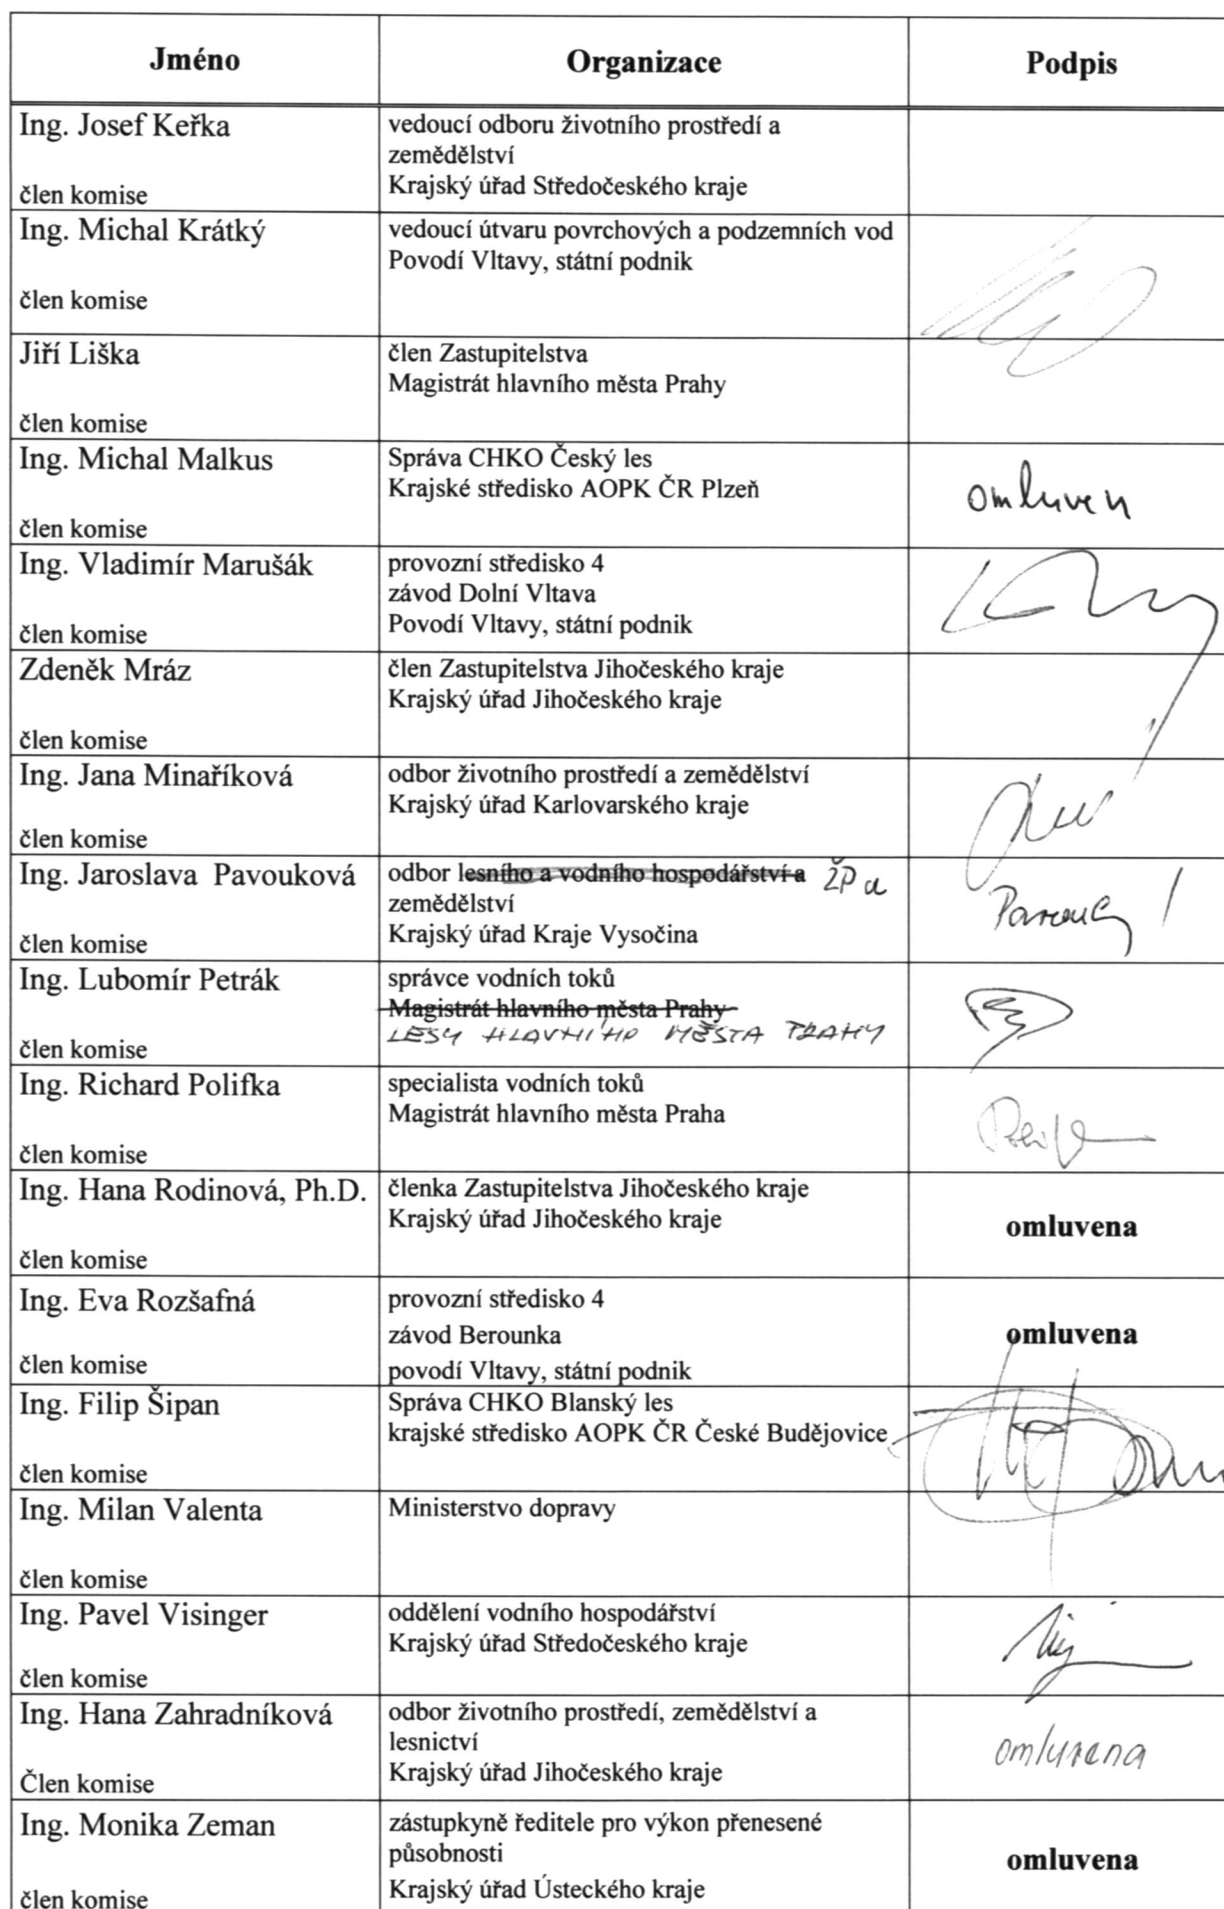 Jméno
Organizace
Podpis
Ing. Josef Keřka
člen komise
vedoucí odboru životního prostředí a
zemědělství
Krajský úřad Středočeského kraje
Ing. Michal Krátký
člen komise
vedoucí útvaru povrchových a podzemních vod
Povodí Vltavy, státní podnik
Jiří Liška
člen komise
člen Zastupitelstva
Magistrát hlavního města Prahy
Ing. Michal Malkus
člen komise
Správa CHKO Český les
Krajské středisko AOPK ČR Plzeň
omluven
Ing. Vladimír Marušák
člen komise
provozní středisko 4
závod Dolní Vltava
Povodí Vltavy, státní podnik
Zdeněk Mráz
člen komise
člen Zastupitelstva Jihočeského kraje
Krajský úřad Jihočeského kraje
Ing. Jana Minaříková
člen komise
odbor životního prostředí a zemědělství
Krajský úřad Karlovarského kraje
Ing. Jaroslava Pavouková
člen komise
odbor lesního a vodního hospodářství a ŽP a
zemědělství
Krajský úřad Kraje Vysočina
Ing. Lubomír Petrák
člen komise
správce vodních toků
Magistrát hlavního města Prahy
LESY HLAVNÍHO MĚSTA PRAHY
Ing. Richard Polifka
člen komise
specialista vodních toků
Magistrát hlavního města Praha
Ing. Hana Rodinová, Ph.D.
člen komise
členka Zastupitelstva Jihočeského kraje
Krajský úřad Jihočeského kraje
omluvena
Ing. Eva Rozšafná
člen komise
provozní středisko 4
závod Berounka
povodí Vltavy, státní podnik
omluvena
Ing. Filip Šipan
člen komise
Správa CHKO Blanský les
krajské středisko AOPK ČR České Budějovice
Ing. Milan Valenta
člen komise
Ministerstvo dopravy
Ing. Pavel Visinger
člen komise
oddělení vodního hospodářství
Krajský úřad Středočeského kraje
Ing. Hana Zahradníková
Člen komise
odbor životního prostředí, zemědělství a
lesnictví
Krajský úřad Jihočeského kraje
omluvena
Ing. Monika Zeman
člen komise
zástupkyně ředitele pro výkon přenesené
působnosti
Krajský úřad Ústeckého kraje
omluvena